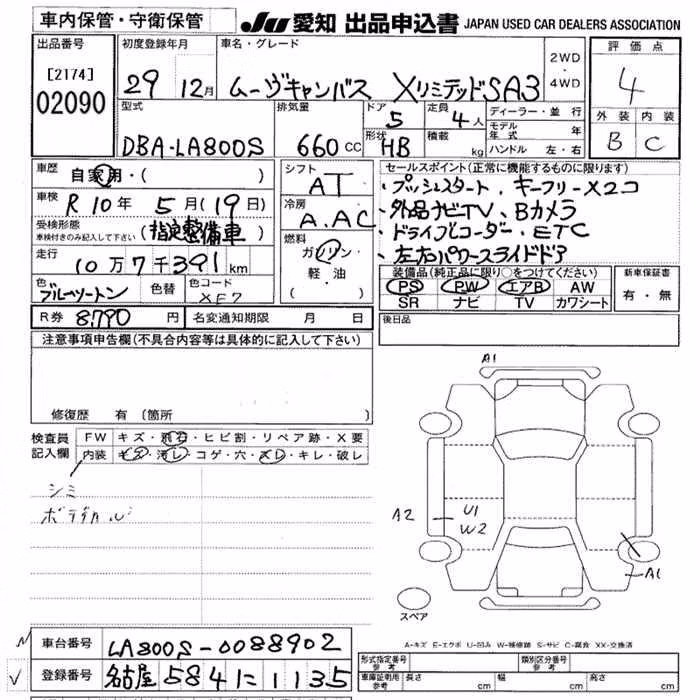 車内保管・守衛保管
JU 愛知 出品申込書 JAPAN USED CAR DEALERS ASSOCIATION
出品番号
[2174]
02090
初度登録年月
29 12月
車名・グレード
ムーヴキャンバス XリミテッドSA3
2WD
・
4WD
評価点
4
外装 内装
B C
型式
DBA-LA800S
排気量
660 CC
ドア
5
形状
HB
定員
4人
積載
kg
ディーラー・並行
モデル年式 年
ハンドル 左・右
車歴
自家用・( )
車検
R 10年 5月(19日)
受検形態
車検付きのみ記入して下さい
(指定整備車)
走行
10万7千391km
色
ブルーツートン
色替
色コード
XE7
シフト
AT
冷房
A.AC
燃料
ガソリン・
軽油
( )
セールスポイント(正常に機能するものに限ります)
・プッシュスタート、キーフリーX2コ
・外品ナビTV、Bカメラ
・ドライブレコーダー、ETC
・左右パワースライドドア
装備品(純正品に限り○をつけてください)
PS PW エアB AW
SR ナビ TV カワシート
新車保証書
有・無
R券 8,790円
名変通知期限 月 日
後日品
注意事項申告欄(不具合内容等は具体的に記入して下さい)
修復歴 有(箇所 )
検査員
記入欄
FW キズ・飛石・ヒビ割・リペア跡・X要
内装 キズ・汚レ・コゲ・穴・スレ・キレ・破レ
シミ
A1
A2
U1
W2
A1
スペア
A-キズ E-エクボ U-凹み W-補修跡 S-サビ C-腐食 XX-交換済
車台番号
LA800S-0088902
登録番号
名古屋584に1135
形式指定番号
参考
類別区分番号
参考
車庫証明用
参考
長さ cm 幅 cm 高さ cm